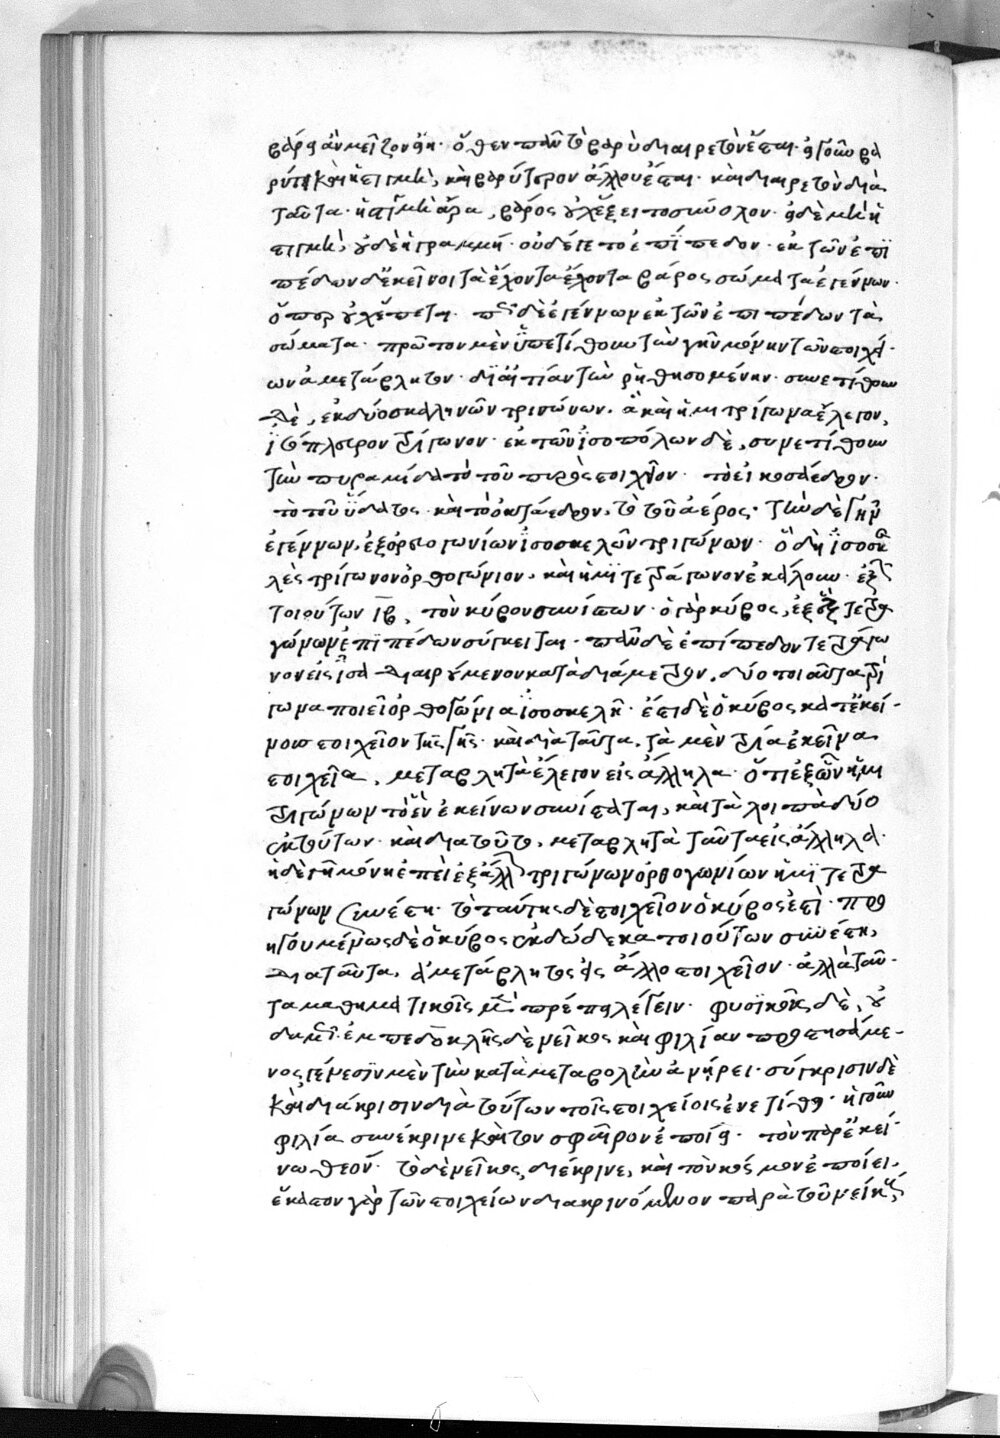 βάρη ἂν μεῖζον ἔη· ὅθεν πᾶν τὸ βαρὺ διαιρετὸν ἔσται· ἡ γοῦν βα
ρύτης καὶ ἡ στιγμὴ, καὶ βαρύτερον ἄλλου ἔσται· καὶ διαιρετὸν διὰ
ταῦτα· ἡ στιγμὴ ἄρα, βάρος οὐχ ἕξει τοσύνολον· εἰ δὲ μὴ ἡ
στιγμὴ, οὐδὲ ἡ γραμμή· οὐδέ γε τὸ ἐπίπεδον· ἐκ τῶν ἐπι
πέδων δ' ἐκεῖνοι τὰ ἔχοντα ἔχοντα βάρος σώματα ἐγέννων·
ὅπερ οὐχ ἕπεται· πῶς δὲ ἐγέννων ἐκ τῶν ἐπιπέδων τὰ
σώματα· πρῶτον μὲν ὑπετίθουν τὴν γῆν μόνην τῶν στοιχεί·
ων ἀμετάβλητον· δι' αἰτίαν τὴν ῥηθησομένην· συνετίθουν
δὲ, ἐκ δύο σκαληνῶν τριγώνων, ἃ καὶ ἡμιτρίγωνα ἔλεγον,
ἰσόπλευρον τρίγωνον· ἐκ τῶν ἰσοπλεύρων δὲ, συνετίθουν
τὴν πυραμίδα τὸ τοῦ πυρὸς στοιχεῖον· τὸ εἰκοσάεδρον·
τὸ τοῦ ὕδατος· καὶ τὸ ὀκτάεδρον, τὸ τοῦ ἀέρος· τὴν δὲ γῆν
ἐγέννων, ἐξ ὀρθογωνίων ἰσοσκελῶν τριγώνων· ὃ δὴ ἰσοσκε
λὲς τρίγωνον ὀρθογώνιον, καὶ ἡμιτετράγωνον ἐκάλουν· ἐκ
τοιούτων ιβ, τὸν κύβον συνιστων· ὁ γὰρ κύβος, ἐξ ἓξ τετρα
γώνων ἐπιπέδων σύγκειται· πᾶν δὲ ἐπίπεδον τετράγω
νον εἰς ἴσα διαιρούμενον κατὰ διάμετρον, δύο ποιαῦτα τρί
γωνα ποιεῖ ὀρθογώνια ἰσοσκελῆ· ἔστι δὲ ὁ κύβος κατ' ἐκεί-
νους στοιχεῖον τῆς γῆς· καὶ διὰ ταῦτα, τὰ μὲν τρία ἐκεῖνα
στοιχεῖα, μεταβλητὰ ἔλεγον εἰς ἄλληλα· ὅτι ἐξ ὧν ἡμι
τριγώνων τὸ ἓν ἐκείνων συνίσταται, καὶ τὰ λοιπὰ δύο
ἐκ τούτων· καὶ διὰ τοῦτο, μεταβλητὰ ταῦτα εἰς ἄλληλα·
ἡ δὲ γῆ μόνη ἐπεὶ ἐξ ἄλλων τριγώνων ὀρθογωνίων ἡμιτετρα
γώνων συνέστη· τὸ ταύτης δὲ στοιχεῖον ὁ κύβος ἐστὶ· προ
ηγουμένως δὲ ὁ κύβος ἐκ δώδεκα τοιούτων συνέστη,
διαταῦτα, ἀμετάβλητος εἰς ἄλλο στοιχεῖον· ἀλλὰ ταῦ-
τα μαθηματικοῖς μὲν πρέπει λέγειν· φυσικοῖς δὲ, οὐ
δαμῶς· ἐμπεδοκλῆς δὲ νεῖκος καὶ φιλίαν προστησάμε-
νος γένεσιν μὲν τὴν κατὰ μεταβολὴν ἀνήρει· σύγκρισιν δὲ
καὶ διάκρισιν διὰ τούτων τοῖς στοιχείοις ἐνετίθει· ἡ γοῦν
φιλία συνέκρινε καὶ τὸν σφαῖρον ἐποίει· τὸν παρ' ἐκεί-
νω θεόν· τὸ δὲ νεῖκος, διέκρινε, καὶ τὸν κόσμον ἐποίει,
ἕκαστον γὰρ τῶν στοιχείων διακρινόμενον παρὰ τοῦ νείκους